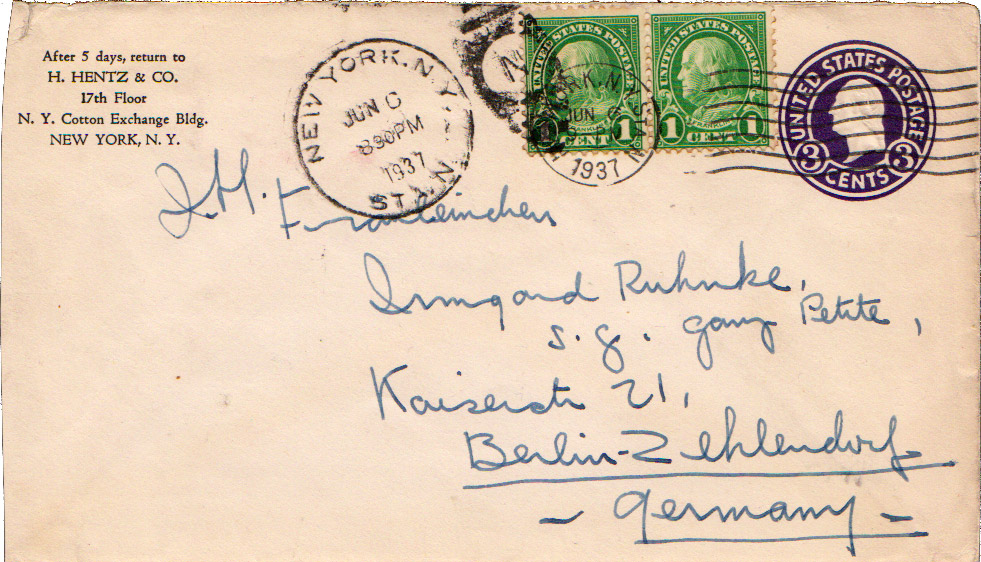 After 5 days, return to
H. HENTZ & CO.
17th Floor
N. Y. Cotton Exchange Bldg.
NEW YORK, N. Y.
NEW YORK, N.Y.
JUN 6
830PM
1937
STA. N
UNITED STATES POSTAGE
1 CENT 1
UNITED STATES POSTAGE
1 CENT 1
YORK, N.Y.
JUN 6
1937
UNITED STATES POSTAGE
3 CENTS 3
Fräuleinchen
Irmgard Ruhnke,
s. g. ganz Petite,
Kaiserstr 21,
Berlin-Zehlendorf
- Germany -